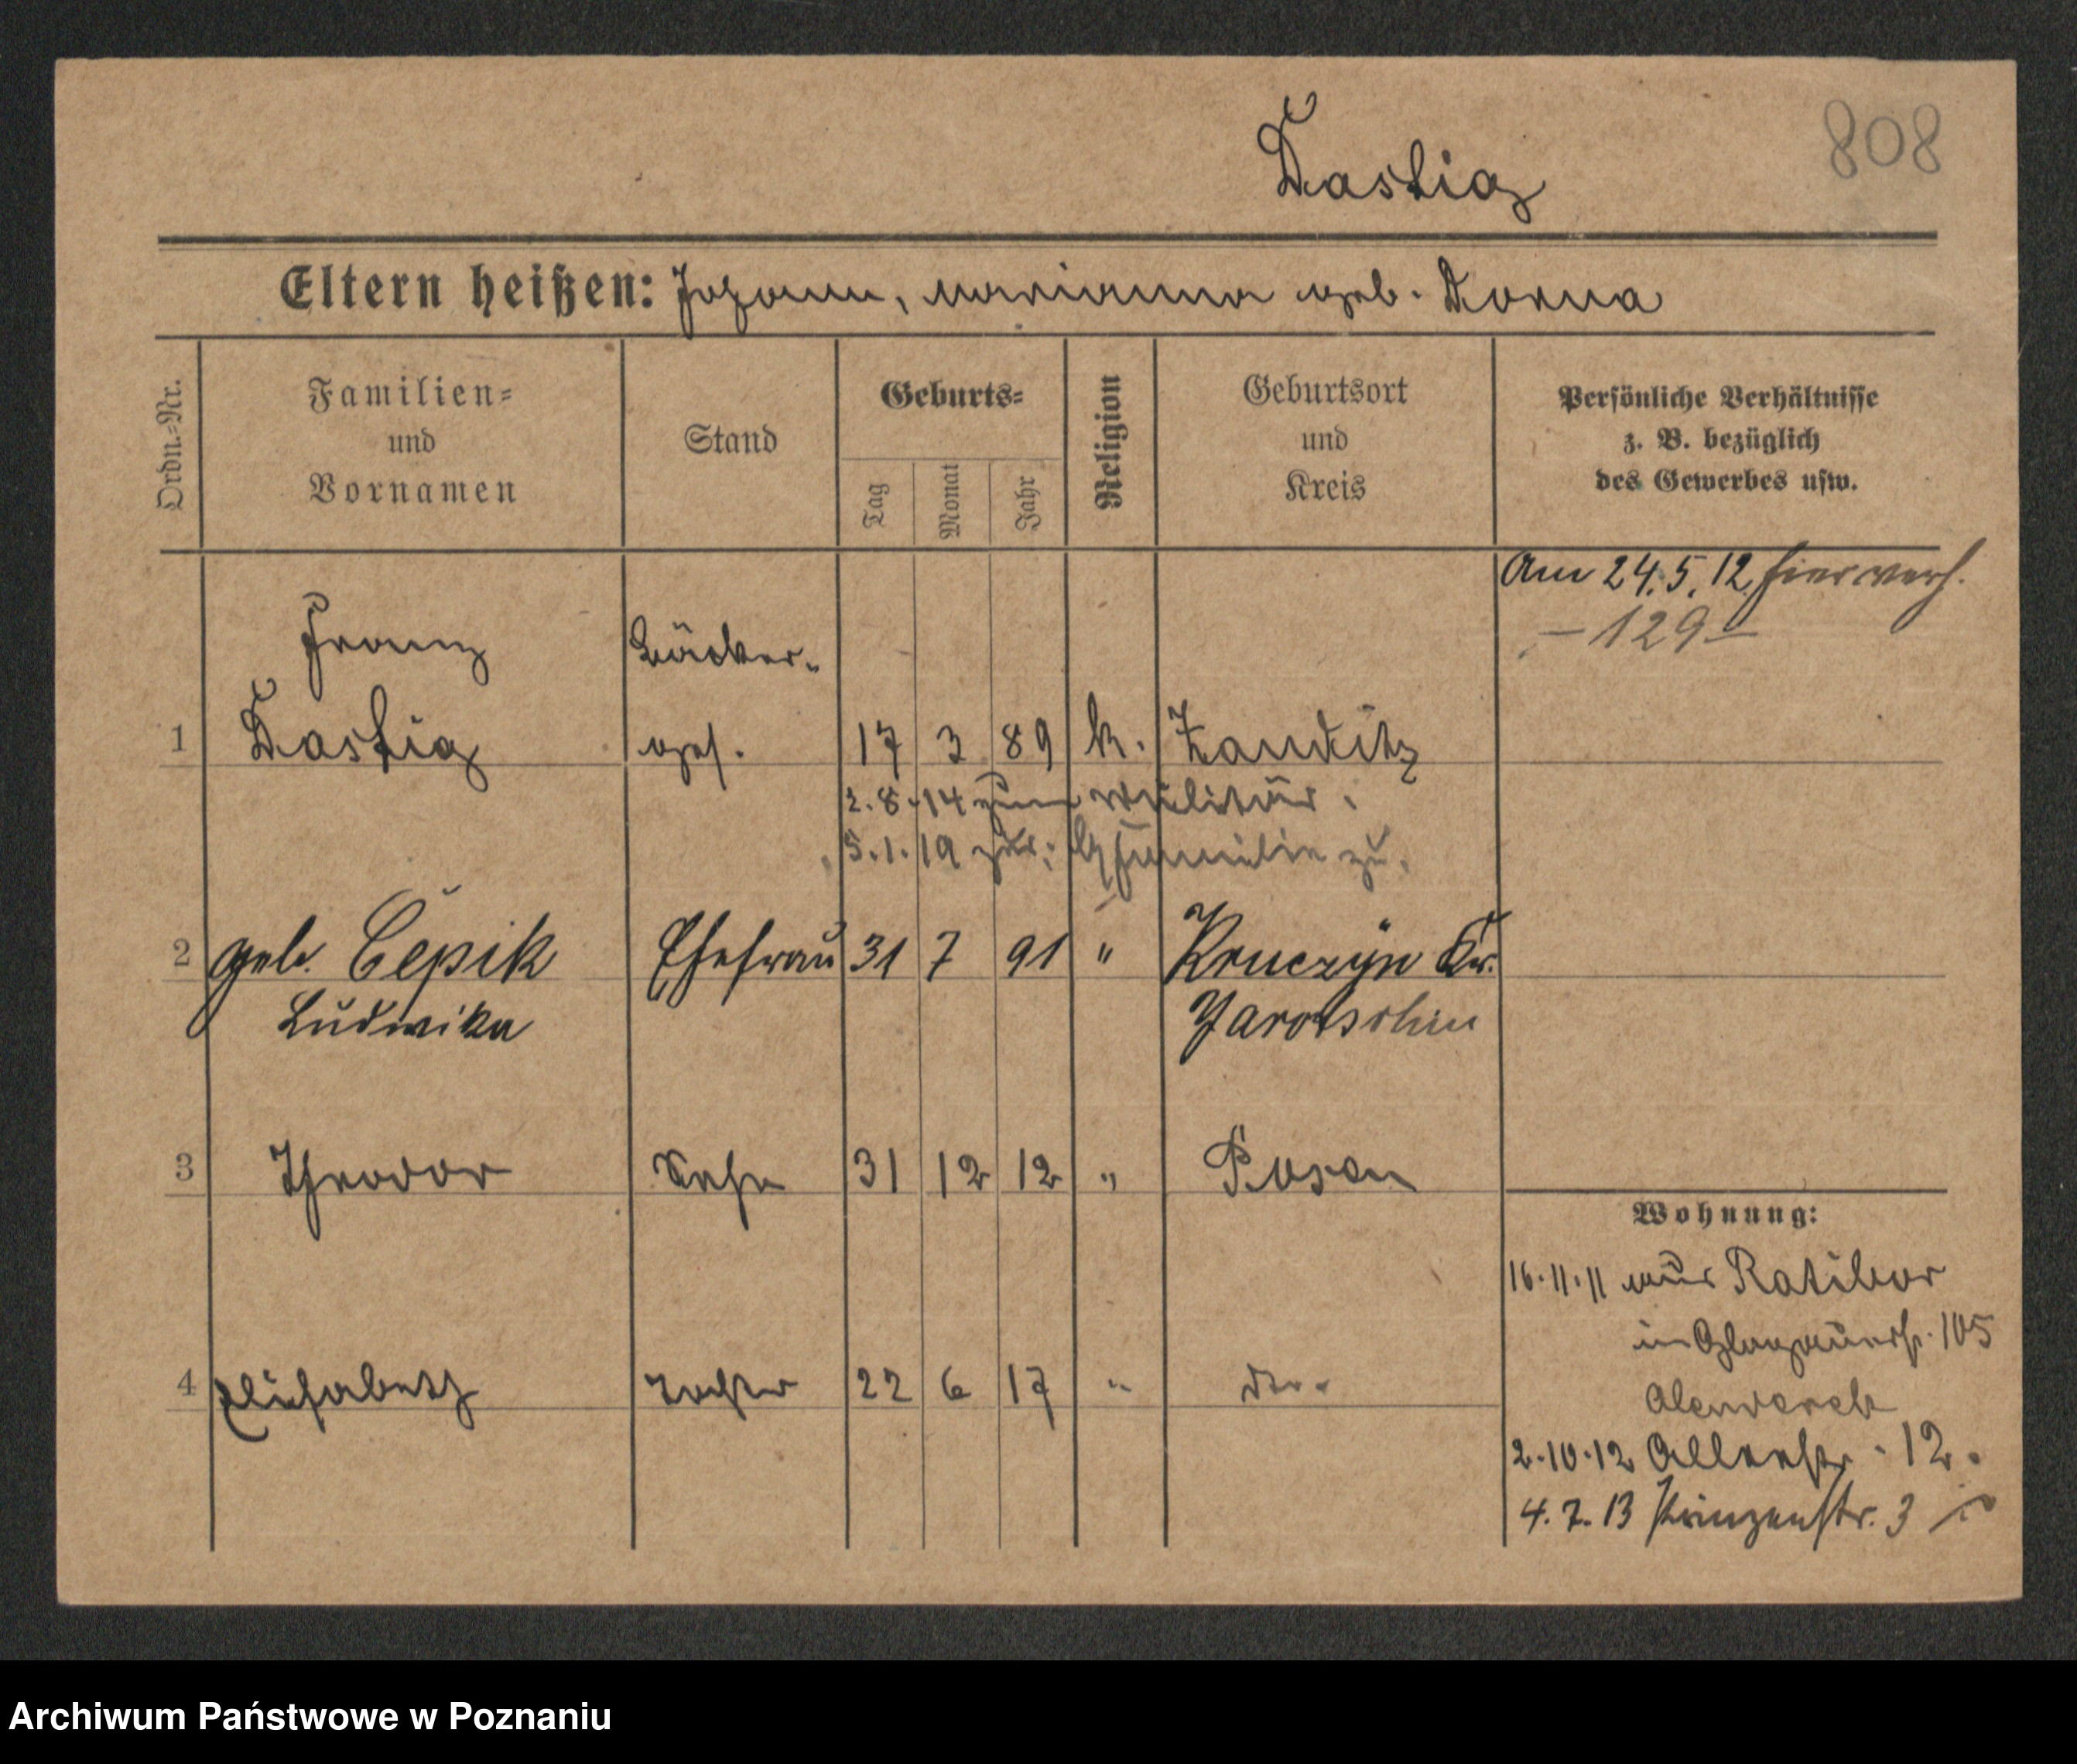 Kastig
808
Eltern heißen: Johann, Marianna geb. Korna
Ordn.-Nr.
Familien-
und
Vornamen
Stand
Geburts-
Tag
Monat
Jahr
Religion
Geburtsort
und
Kreis
Persönliche Verhältnisse
z. B. bezüglich
des Gewerbes usw.
Am 24.5.12 hier verh.
- 129 -
Franz Bäcker-
1 Kastig ges. 17 3 89 k. Zauditz
2.8.14 zum Militär.
5.1.19 zur. Familie zu.
2 geb. Cepik Ehefrau 31 7 91 " Kruczyn Kr.
Ludwika Jarotschin
3 Theodor Sohn 31 12 12 " Posen
Wohnung:
16.11.11 aus Ratibor
in Glogauerstr. 105
4 Elisabeth Tochter 22 6 17 " dto.
2.10.12 Alleestr. 12.
4.7.13 Prinzenstr. 3
Archiwum Państwowe w Poznaniu